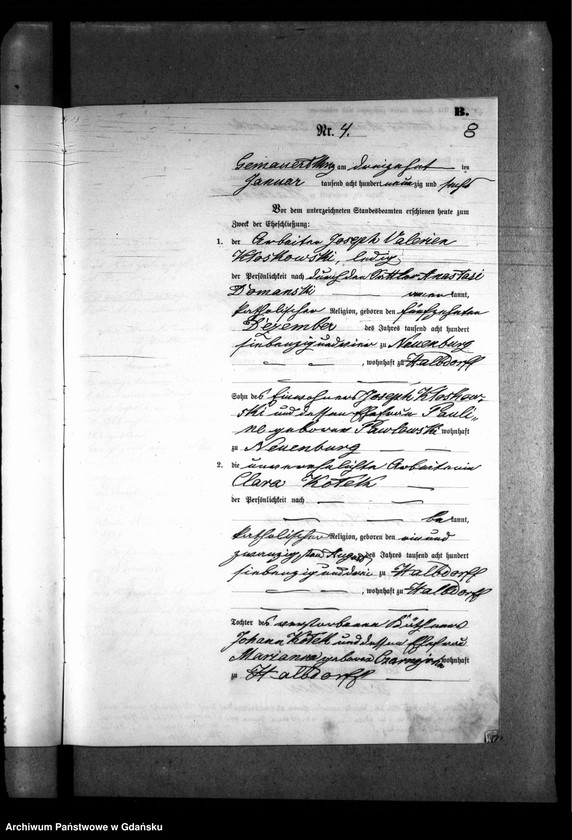 B.
Nr. 4.
8
am dreizehnten
Januar tausend acht hundert neunzig und sechs
Vor dem unterzeichneten Standesbeamten erschienen heute zum
Zweck der Eheschließung:
1. der Arbeiter Joseph Valerien
Kłoskowski, ledig
der Persönlichkeit nach durch den Anastasi
Domanski kannt,
katholischer Religion, geboren den fünfzehnten
Dezember des Jahres tausend acht hundert
siebenzig und vier zu Neuenburg
, wohnhaft zu Halbdorff
Sohn des Einwohners Joseph Kłoskow-
ski und dessen Ehefrau Pauli-
ne geboren Pawlewski wohnhaft
zu Neuenburg
2. die unverehelichte Arbeiterin
Clara Kotek
der Persönlichkeit nach
be kannt,
katholischer Religion, geboren den ein und
zwanzigsten August des Jahres tausend acht hundert
siebenzig und drei zu Halbdorff
, wohnhaft zu Halbdorff
Tochter des verstorbenen Käthners
Johann Kotek und dessen Ehefrau
Marianna geboren wohnhaft
zu Halbdorff
Archiwum Państwowe w Gdańsku